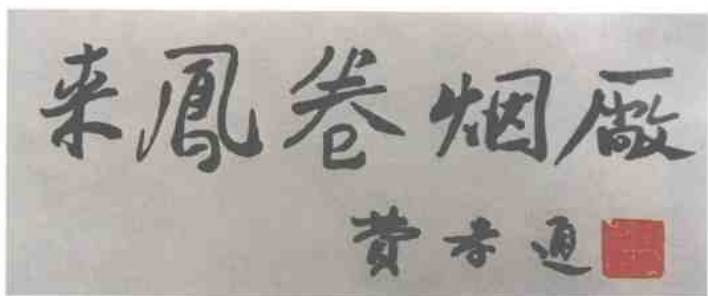 来鳳卷烟廠
費孝通